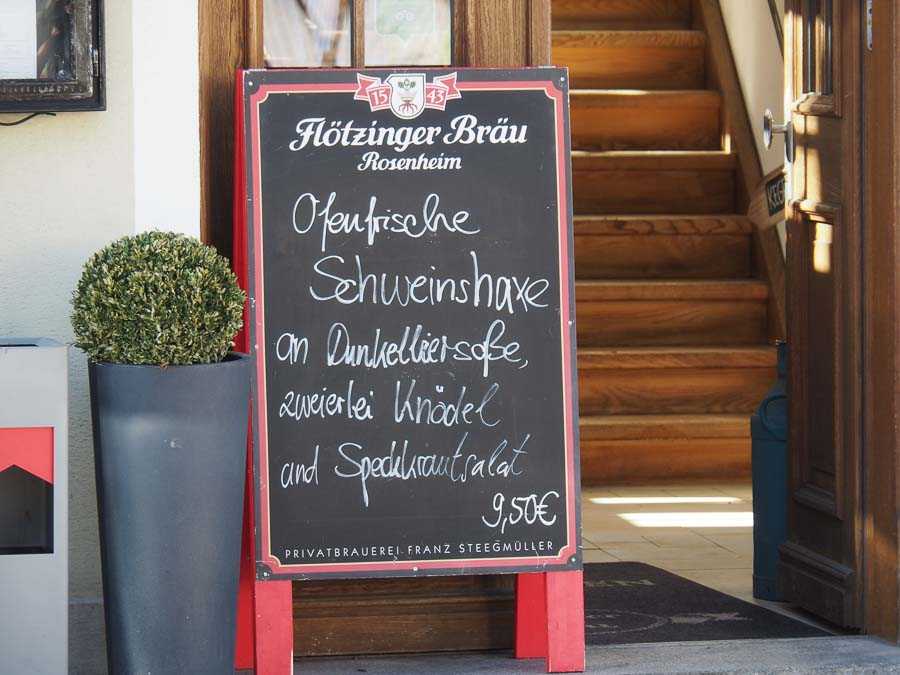 15 43
Flötzinger Bräu
Rosenheim
Ofenfrische
Schweinshaxe
an Dunkelbiersoße,
zweierlei Knödel
und Speckkrautsalat
9,50€
PRIVATBRAUEREI FRANZ STEEGMÜLLER